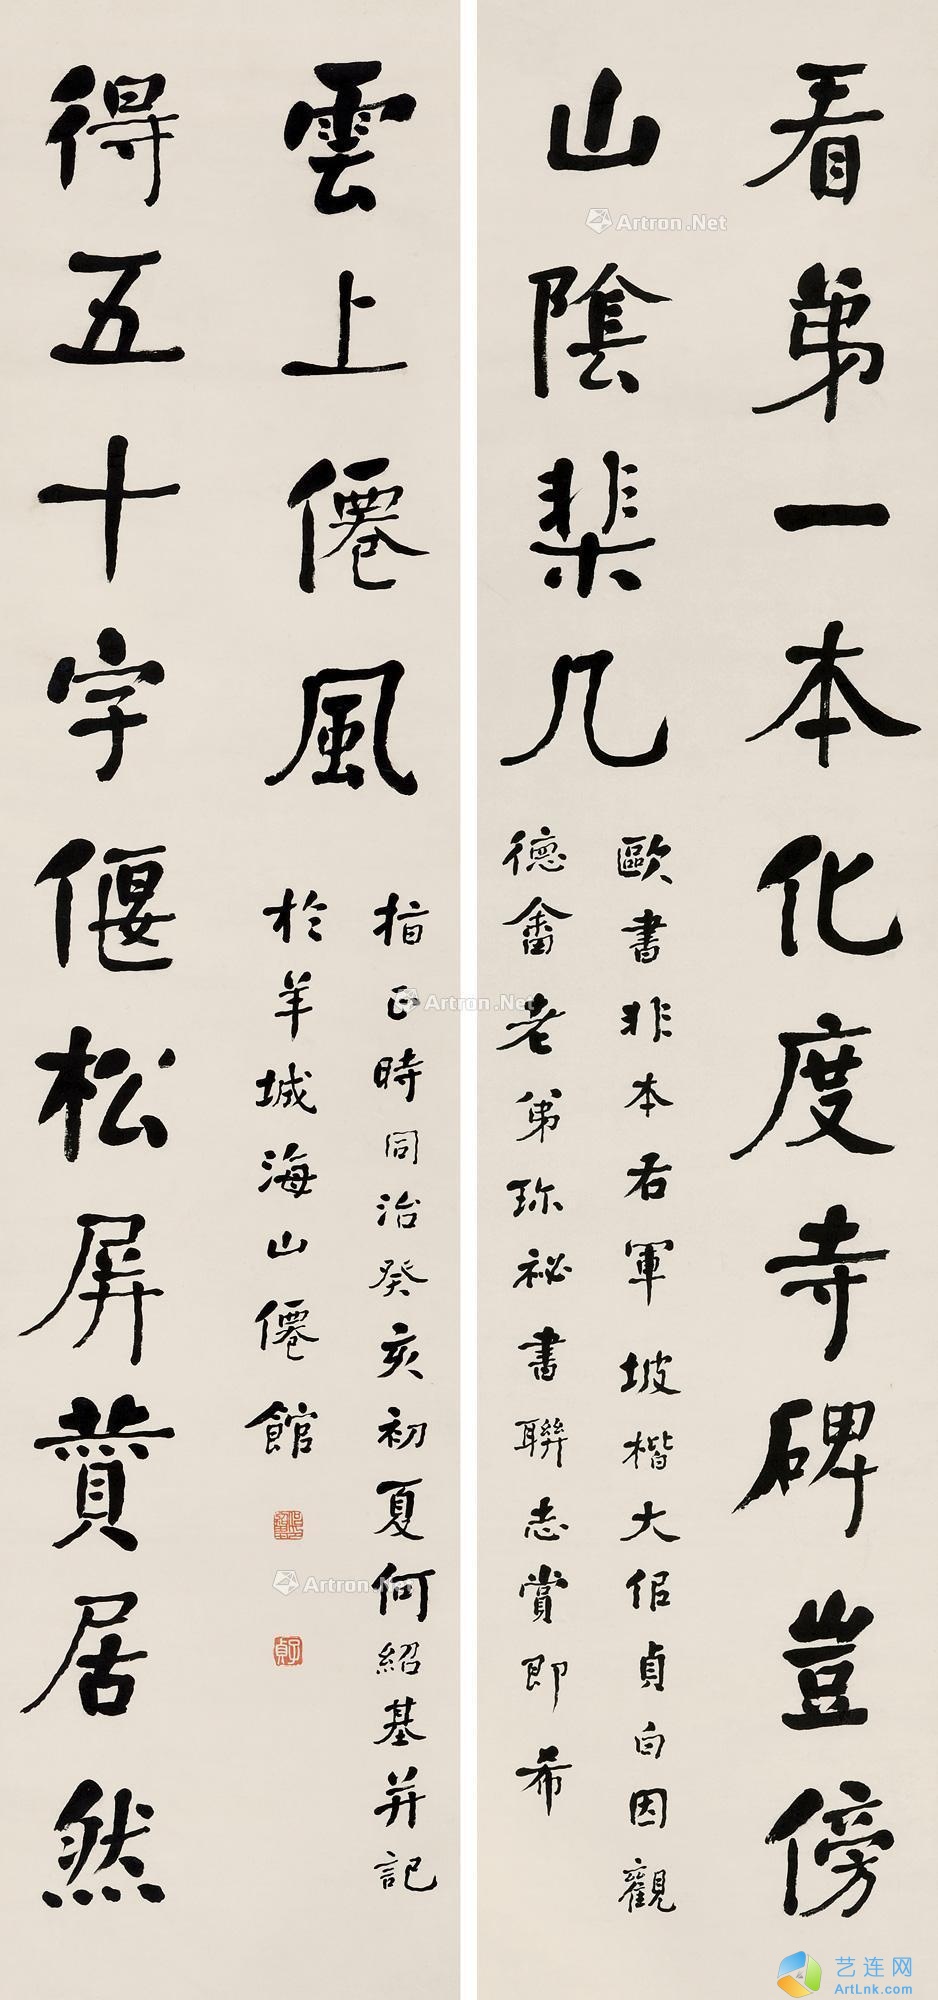 看弟一本化度寺碑豈傍
山陰棐几
歐書非本右軍坡楷大佀貞白因觀
德畬老弟珎祕書聯志賞即希
得五十字偃松屏贊居然
雲上僊風
指正時同治癸亥初夏何紹基并記
於羊城海山僊館
子貞
Artron.Net
Artron.Net
Artron.Net
艺连网
ArtLnk.com